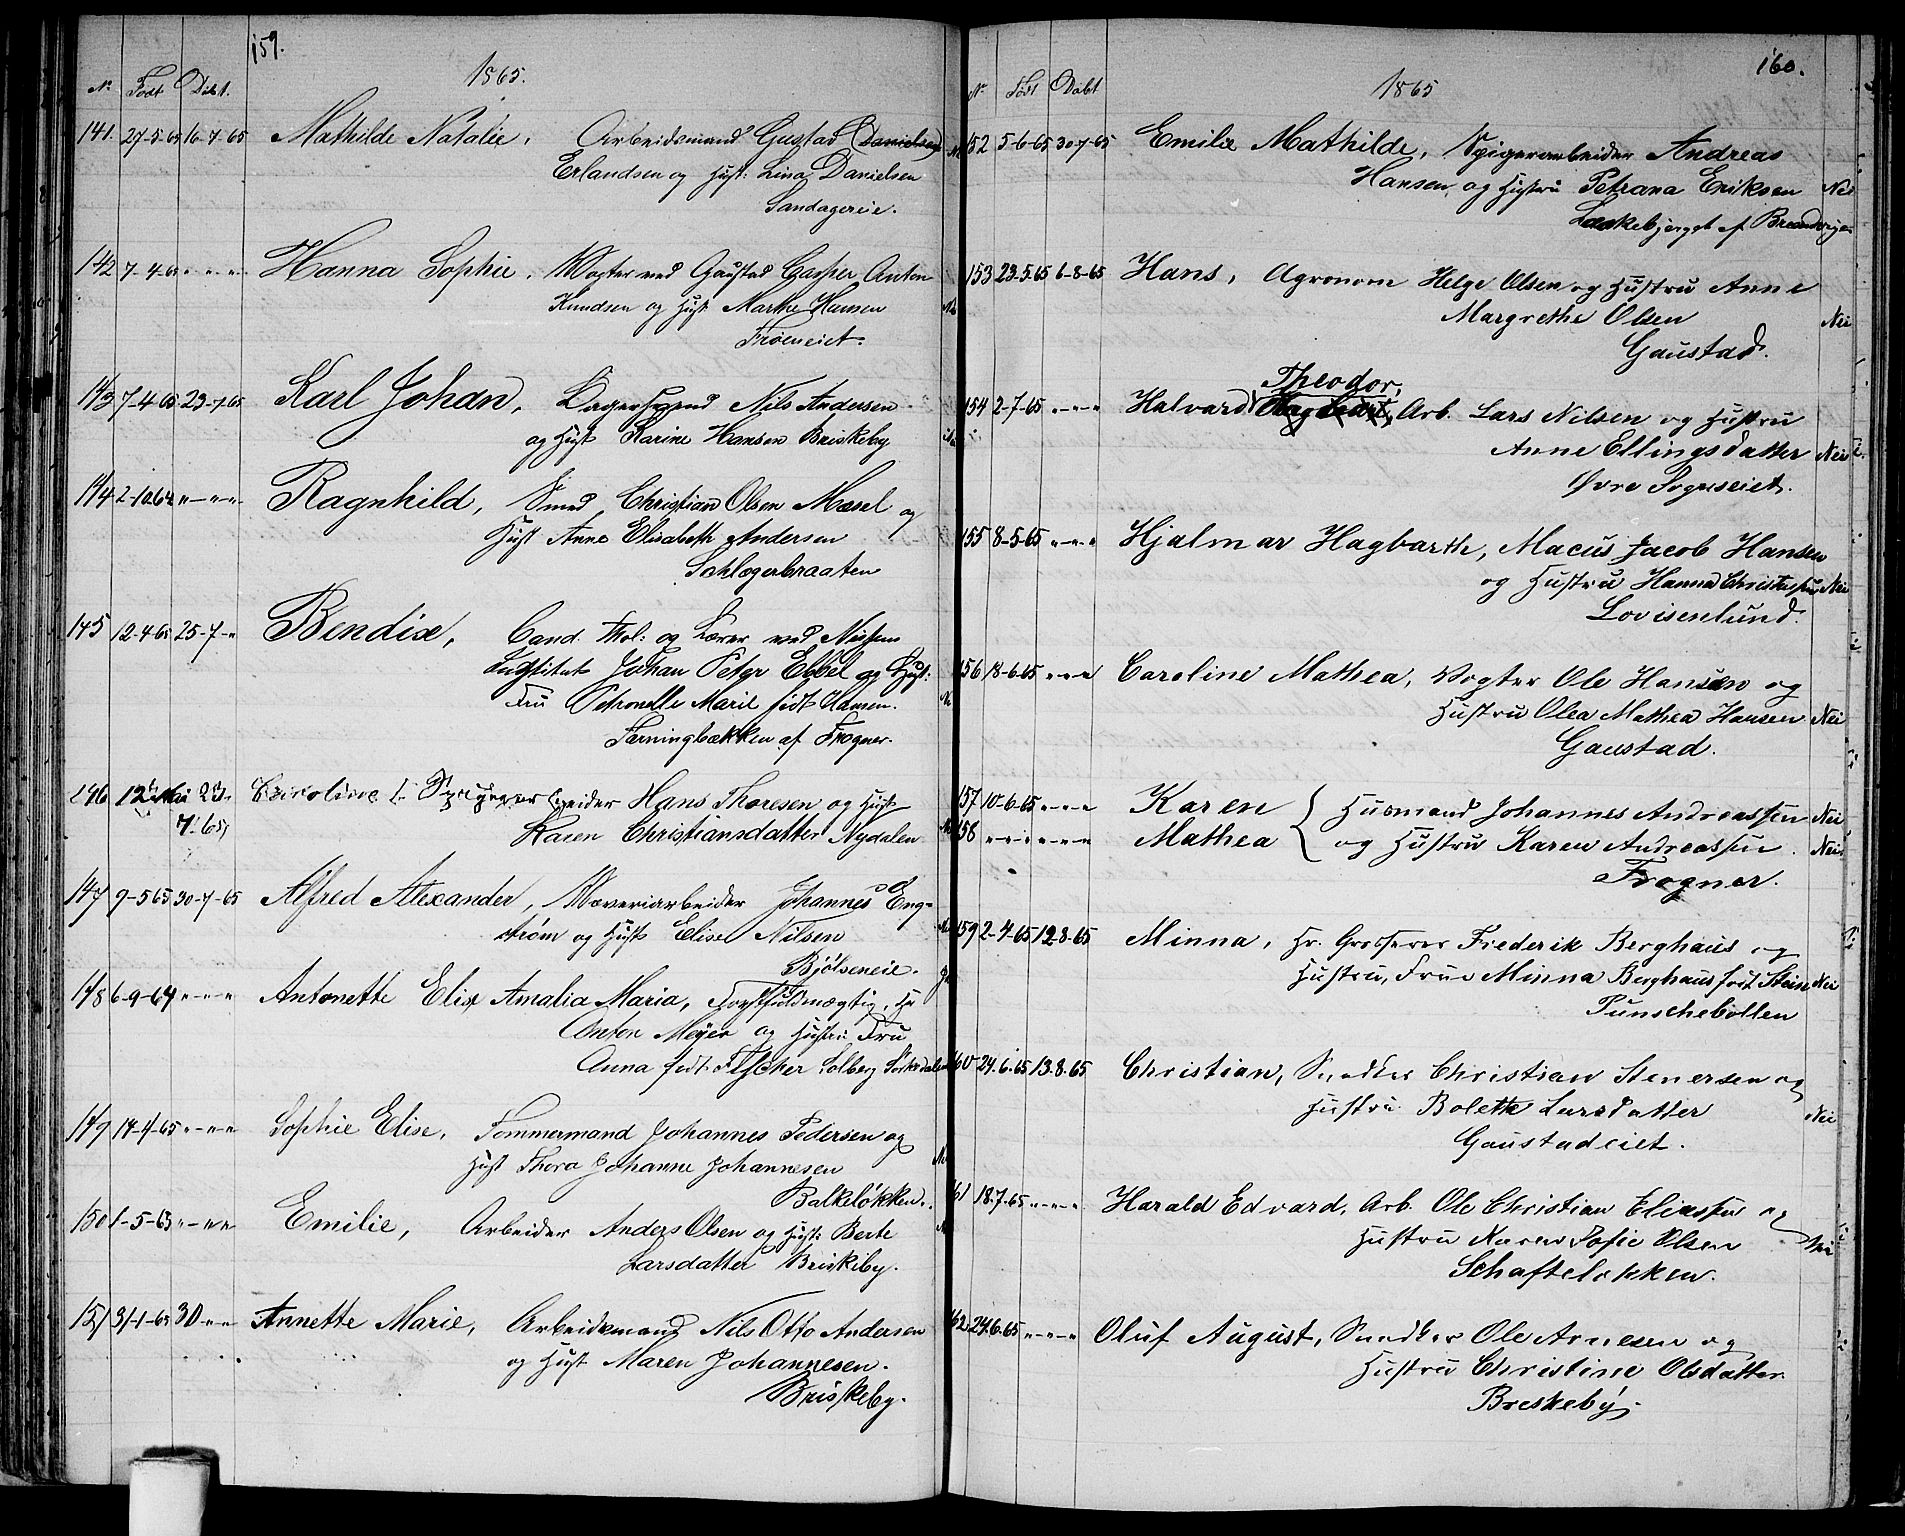 159.
1865.
No Født Døbt.
141. 27-5-65 16-7-65 Mathilde Natalie, Arbeidsmand Gustad (Danielsen)
Erlandsen og Hust: Lina Danielsen
Sandagereie.
142 7-4-65 " " " Hanna Sophie, Vogter ved Gaustad Casper Anton
Knudsen og Hust Marthe Hansen
Frøeneiet.
143 7-4-65 23-7-65 Karl Johan, Nils Andersen
og Hust Karine Hansen Briskeby
144 2-10-64 "-"-" Ragnhild, Smed Christian Olsen Mæsel og
Hust Anne Elisabeth Andersen
Schlægerbraaten
145 12-4-65 25-7-" Bendix, Cand. Thol: og Lærer ved Nissens
Institut Johan Peter Ebbel og Hust:
Fru Petronelle Marie født Hansen.
Terningbækken af Frogner.
146 12 Mai 23-7-65 Caroline, Spigerarbeider Hans Thoresen og Hust
Karen Christiansdatter Nydalen
147 9-5-65 30-7-65 Alfred Alexander, Væveriarbeider Johannes Eng-
strøm og Hust Elise Nilsen
Bjølseneie.
148 6-9-64 "-"-" Antonette Elise Amalia Maria, Forstfuldmægtig, Hr
Anton Meyer og Hustru Fru
Anna født Fischer Solberg Sørkedalen
149 14-4-65 "-"-" Sophie Elise, Tømmermand Johannes Pedersen og
Hust Thora Johanne Johannesen
Balkeløkken.
150 1-5-65 "-"-" Emilie, Arbeider Anders Olsen og Hust: Berte
Larsdatter Briskeby.
151 31-1-65 30-"-" Annette Marie, Arbeidsmand Nils Otto Andersen
og Hust Maren Johannesen.
Briskeby.
160.
1865
No Født Døbt
152 5-6-65 30-7-65 Emilie Mathilde, Spigerarbeider Andreas
Hansen og Hustru Petrana Eriksen Nei
Læskebjerget af
153 23-5-65 6-8-65 Hans, Agronom Helge Olsen og Hustru Anne
Margrethe Olsen Nei
Gaustad.
Theodor,
154 2-7-65 "-"-" Halvard Arb. Lars Nilsen og Hustru
Anne Ellingsdatter Nei
Øvre Vognseiet.
155 8-5-65 "-"-" Hjalmar Hagbarth, Macus Jacob Hansen
og Hustru Hanna Christensen Nei
Lovisenlund.
156 18-6-65 "-"-" Caroline Mathea, Vogter Ole Hansen og
Hustru Olea Mathea Hansen Nei
Gaustad.
157 10-6-65 "-"-" Karen { Husmand Johannes Andreassen Nei
158 "-"-" "-"-" Mathea og Hustru Karen Andreassen. Nei
Frogner.
159 2-4-65 12-8-65 Minna, Hr. Grosserer Frederik Berghaus og
Hustru, Frue Minna Berghaus født Stein Nei
Punschebollen
160 24-6-65 13-8-65 Christian, Snedker Christian Stenersen og
Hustru Bolette Larsdatter Nei
Gaustadeiet.
161 18-7-65 "-"-" Harald Edvard, Arb. Ole Christian Eliassen og
Hustru Karen Sofie Olsen Nei
Schafteløkken.
162 24-6-65 "-"-" Oluf August, Snedker Ole Arnesen og
Hustru Christine Olsdatter
Breskeby.